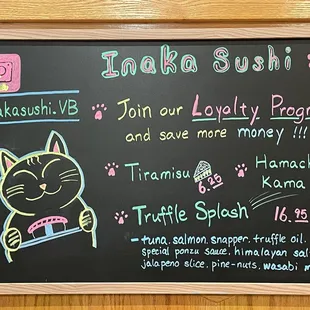 Inaka Sushi
akasushi.VB
Join our Loyalty Progr
and save more money !!!
Tiramisu 6.25
Hamach
Kama
Truffle Splash 16.95
- tuna. salmon. snapper. truffle oil.
special ponzu sauce, himalayan sal
jalapeno slice, pine-nuts. wasabi m